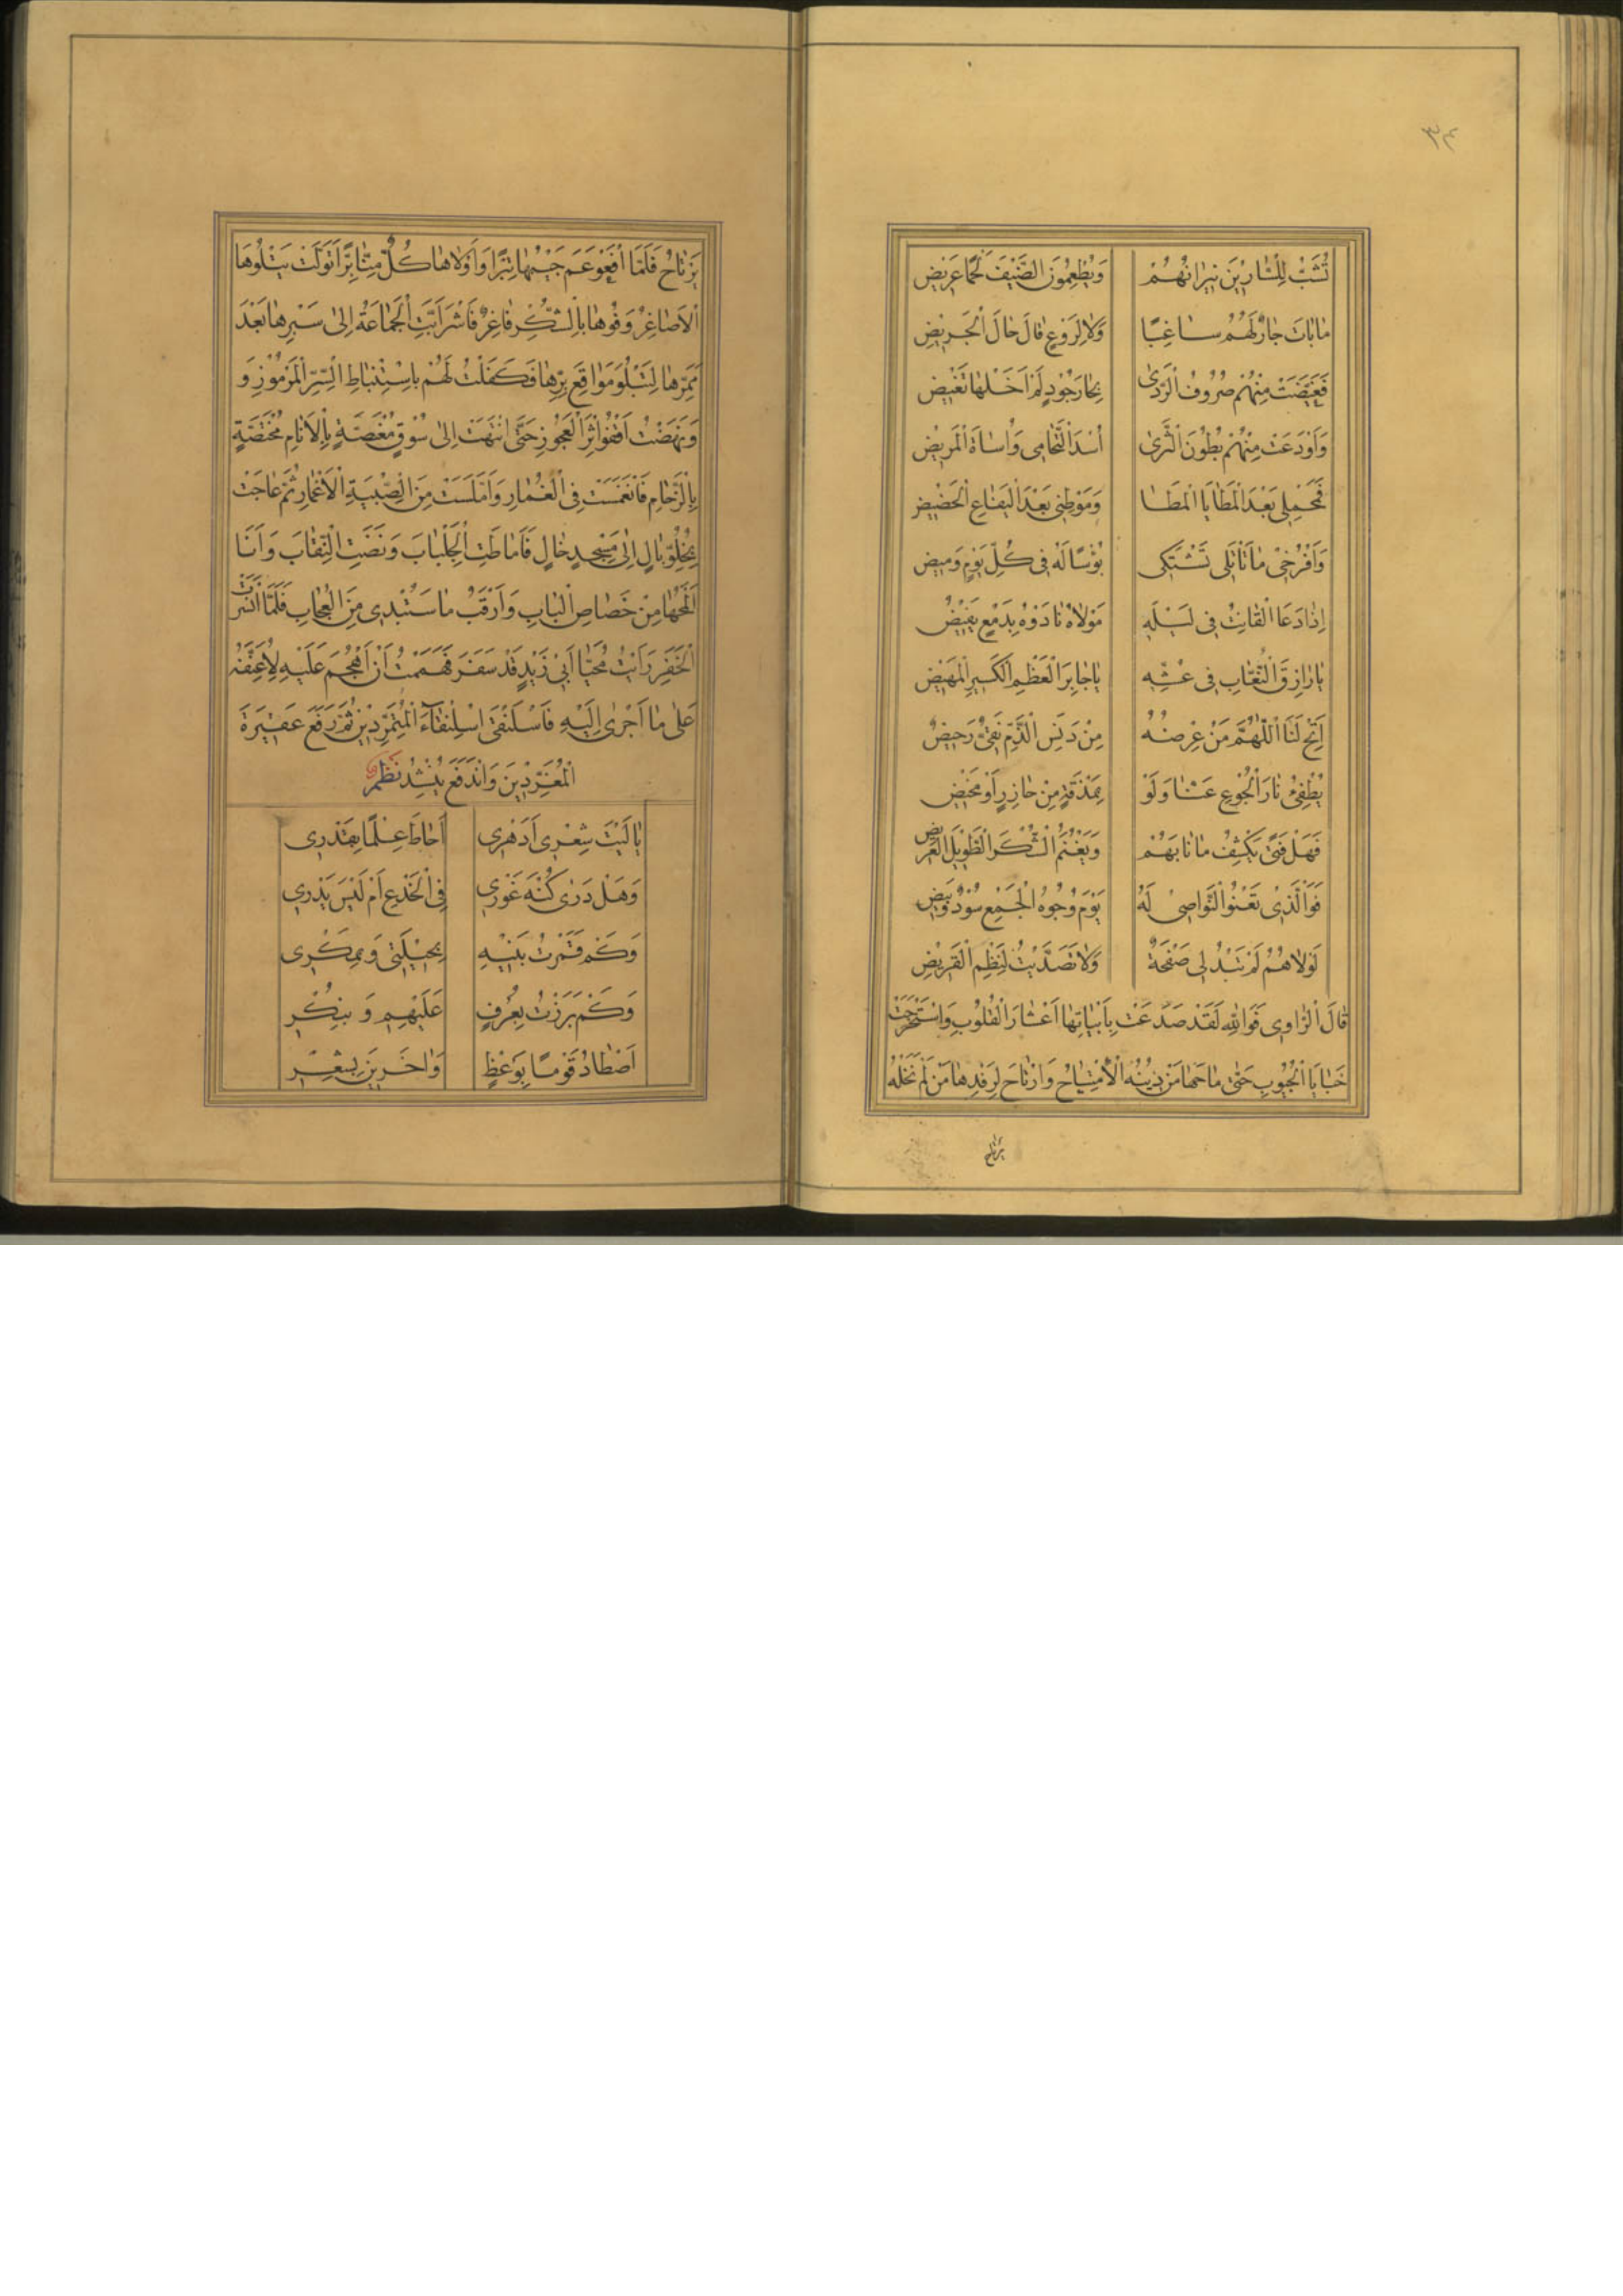 ٣٤
تُشَبُّ لِلسّٰارِيْنَ نيرٰانُهُمْ وَيُطْعِمُونَ الضَّيْفَ لَحْمًا عَرِيضٍ
مٰابٰاتَ جٰارٌ لَهُمْ سٰاغِبًا وَلاٰ لِرَوْعٍ قٰالَ حٰالَ الْجَرِيْضِ
فَغَيَّضَتْ مِنْهُمْ صُرُوفُ الرَّدىٰ بِحٰارَ جُوْدٍ لَمْ اَخَلْهٰا تَغْيضِ
وَاَوْدَعَتْ مِنْهُمْ بُطُوْنَ الثَّرىٰ اُسْدَ التَّحٰامِى وَاُسٰاةَ الْمَرِيْضِ
فَمَحْمِلى بَعْدَ الْمَطٰايَا الْمَطٰا وَمَوْطِنى بَعْدَ الْيَفٰاعِ الْحَضْيضِ
وَاَفْرُخِىْ مٰاتَأْتَلى تَشْتَكِى بُؤْسًا لَهُ فى كُلِّ يَوْمٍ وَميضٍ
اِذٰا دَعَا الْقٰانِتُ فى لَيْلِهِ مَوْلاٰهُ نٰادَوْهُ بِدَمْعٍ يَفيْضُ
يٰا رٰازِقَ النَّعّٰابِ فى عُشِّهِ يٰاجٰابِرَ الْعَظْمِ الْكَسيرِ الْمَهيْضِ
اَتِحْ لَنَا اللّٰهُمَّ مَنْ عِرْضُهُ مِنْ دَنَسِ الذَّمِّ نَقِىٌّ رَحيضٌ
يُطْفِئُ نٰارَ الْجُوْعِ عَنّٰا وَلَوْ بِمَذْقَةٍ مِنْ حٰازِرٍ اَوْ مَخيْضٍ
فَهَلْ فَتًى يَكْشِفُ مٰانٰابَهُمْ وَيَغْنَمُ الشُّكْرَ الطَّوْيلَ الْعَريض
فَوَالَّذى تَعْنُو النَّوٰاصِىْ لَهُ يَوْمَ وُجُوهُ الْجَمْعِ سُوْدٌ وَبيض
لَوْلاٰهُمْ لَمْ تَبْدُ لى صَفْحَةٌ وَلاٰ تَصَدَّيْتُ لِنَظْمِ الْقَريْضِ
قٰالَ الرّٰاوِى فَوَاللّٰهِ لَقَدْ صَدَّعَتْ بِاَبْيٰاتِهٰا اَعْشٰارَ الْقُلُوْبِ وَاسْتَخْرَجَتْ
خَبٰايَا الْجُيُوْبِ حَتّٰى مٰاحَهٰا مَنْ دِيْنُهُ الْاِمْتِيٰاحُ وَارْتٰاحَ لِرِفْدِهٰا مَنْ لَمْ نَخَلْهُ
يَرْتٰاحُ
يَرْتٰاحُ فَلَمَّا افْعَوْعَمَ جَيْبُهٰا تِبْرًا وَاَوْلاٰهٰا كُلٌّ مِنّٰا بِرًّا تَوَلَّتْ يَتْلُوْهَا
الْاَصٰاغِرُ وَفُوْهٰا بِالشُّكْرِ فٰاغِرٌ فَاشْرَاَبَّتِ الْجَمٰاعَةُ اِلىٰ سَبْرِهٰا بَعْدَ
مَمَرِّهٰا لِتَبْلُوَ مَوٰاقِعَ بِرِّهٰا فَكَفَلْتُ لَهُمْ بِاسْتِنْبٰاطِ السِّرِّ الْمَرْمُوْزِ وَ
وَنَهَضْتُ اَقْفُوْ اَثَرَ الْعَجُوْزِ حَتَّى انْتَهَتْ اِلىٰ سُوْقٍ مُغْتَصَّةٍ بِالْاَنٰامِ مُخْتَصَّةٍ
بِالزِّحٰامِ فَانْغَمَسَتْ فِى الْغُمٰارِ وَامَّلَسَتْ مِنَ الصِّبْيَةِ الْاَغْمٰارِ ثُمَّ عٰاجَتْ
بِخُلُوِّ بٰالٍ اِلىٰ مَسْجِدٍ خٰالٍ فَاَمٰاطَتِ الْجِلْبٰابَ وَنَضَتِ النِّقٰابَ وَاَنَا
اَلْمَحُهٰا مِنْ خَصٰاصِ الْبٰابِ وَاَرْقُبُ مٰا سَتُبْدِى مِنَ الْعُجٰابِ فَلَمَّا انْسَرَتْ
الْخَفَرِ رَاَيْتُ مُحَيَّا اَبىْ زَيْدٍ قَدْ سَفَرَ فَهَمَمْتُ اَنْ اَهْجُمَ عَلَيْهِ لِاُعَنِّفَهُ
عَلىٰ مٰا اَجْرىٰ اِلَيْهِ فَاسْلَنْقىٰ اسْلِنْقٰاءَ الْمُتَمَرِّدِيْنَ ثُمَّ رَفَعَ عَقيْرَةَ
الْمُغَرِّدِيْنَ وَانْدَفَعَ يُنْشِدُ نَظْم
يٰا لَيْتَ شِعْرِى اَدَهْرِى اَحٰاطَ عِلْمًا بِقَدْرِى
وَهَلْ دَرىٰ كُنْهَ غَوْرِى فِى الْخَدْعِ اَمْ لَيْسَ يَدْرِي
وَكَمْ قَمَرْتُ بَنيْهِ بِحيْلَتى وَبِمَكْرِى
وَكَمْ بَرَزْتُ بِعُرْفٍ عَلَيْهِمِ وَ بِنُكْرِ
اَصْطٰادُ قَوْمًا بِوَعْظٍ وَاٰخَرينَ بِشِعْرِ